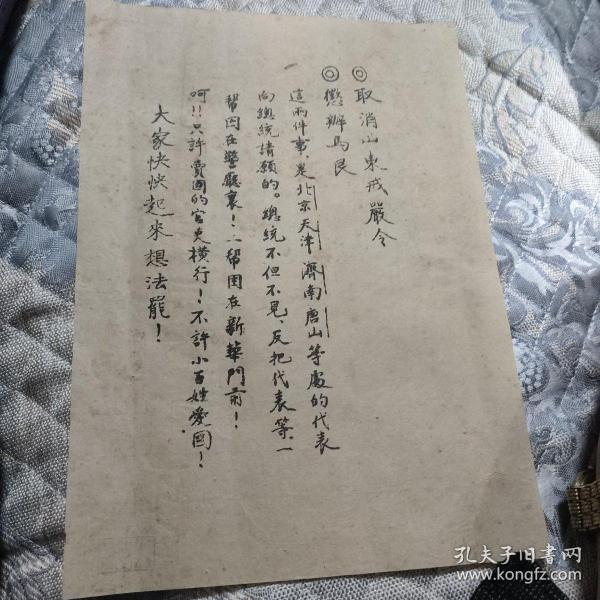 ◎取消山東戒嚴令
◎懲辦馬良
這兩件事、是北京天津濟南唐山等處的代表
向總統請願的。總統不但不見、反把代表等、一
幫困在警廳裏！二幫困在新華門前！
呵!!只許賣國的官吏橫行！不許小百姓愛國！
大家快快起來想法罷！
孔夫子旧书网
www.kongfz.com